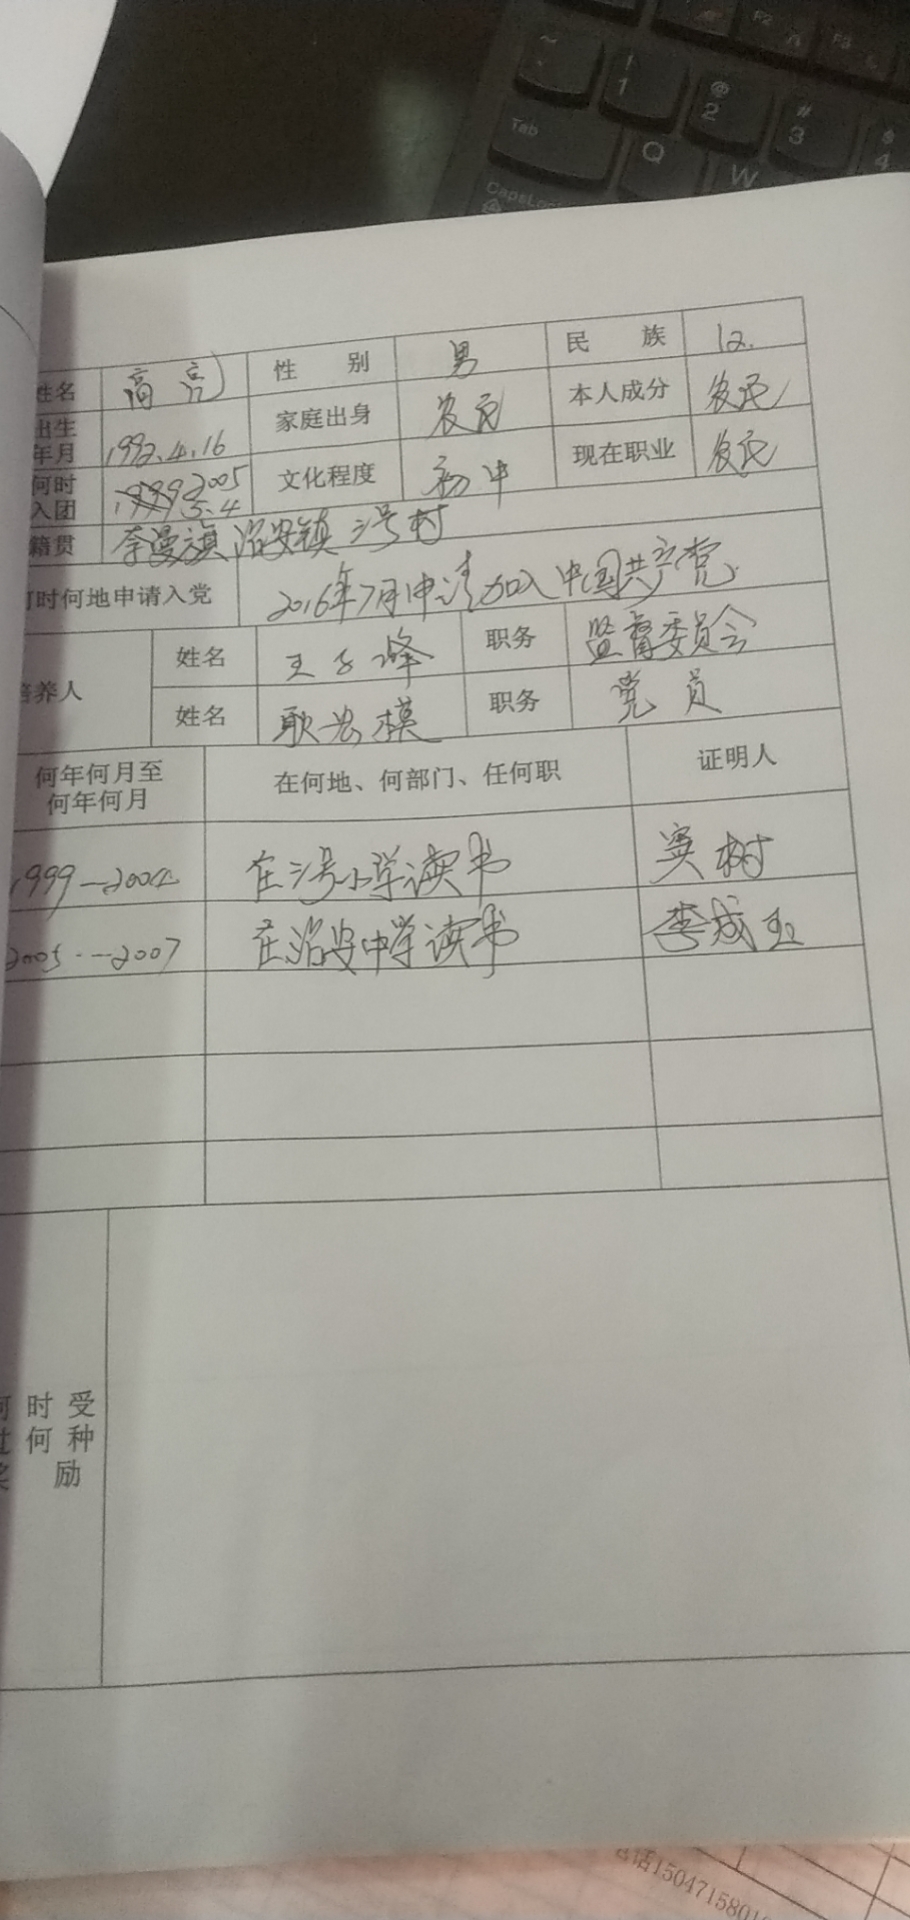 ~ ! 1 @ 2 # 3 $ 4 F2 F3
Tab Q W
CapsLoc
姓名 高亮 性 别 男 民 族 汉
出生年月 1992.4.16 家庭出身 农民 本人成分 农民
何时入团 2005 5.4 文化程度 初中 现在职业 农民
籍贯 奈曼旗治安镇三号村
何时何地申请入党 2016年7月申请加入中国共产党.
培养人 姓名 王子峰 职务 监督委员会
姓名 耿 模 职务 党员
何年何月至何年何月 在何地、何部门、任何职 证明人
1999—2004 在三号小学读书 树
2005---2007 在治安中学读书 李成玉
时 受
何 种
励
电话1504715801